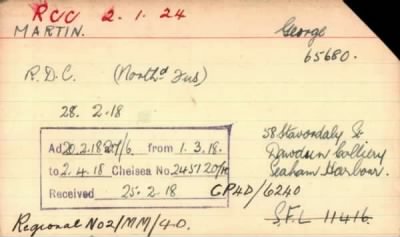 RCC 2.1.24
MARTIN. George
65680.
R.D.C. (North'd Fus)
28. 2.18
Ad 20.2.18 20/6. from 1.3.18.
to 2.4.18 Chelsea No. 245120/
Received 25.2.18
58 Stavordale St
Dawdon Colliery
Seaham Harbour.
GP4D/6240
S.F.L 11416.
Regional No2/MM/40.